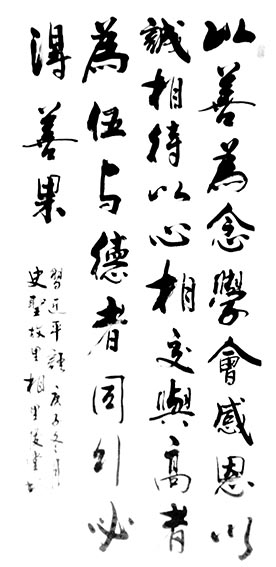 以善為念學會感恩以
誠相待以心相交與高者
為伍与德者同行必
淂善果
習近平語 庚子冬月
史聖故里相里